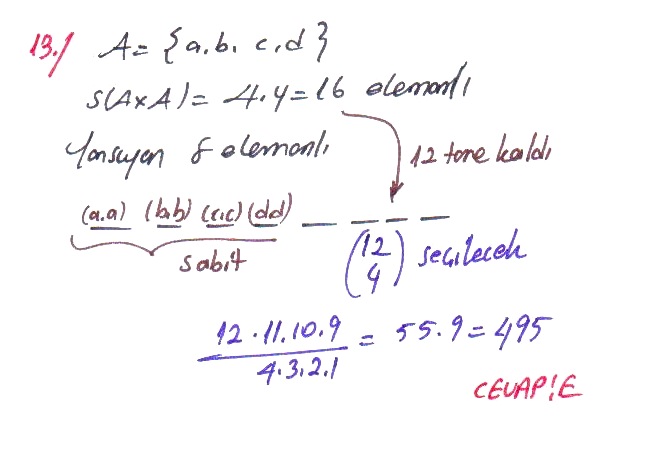 13.) A = {a,b,c,d}
s(AxA) = 4.4 = 16 elemanlı
Yansıyan 8 elemanlı
12 tane kaldı
(a.a) (b,b) (c,c) (d,d) _ _ _ _
sabit
(12 4) seçilecek
12.11.10.9 / 4.3.2.1 = 55.9 = 495
CEVAP:E